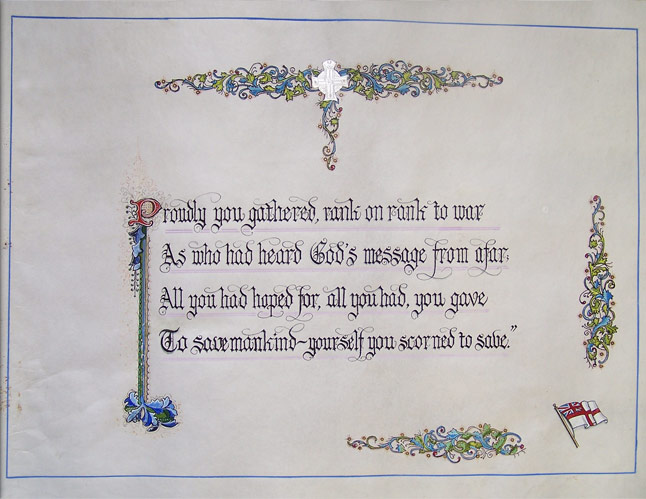 Proudly you gathered, rank on rank to war
As who had heard God's message from afar;
All you had hoped for, all you had, you gave
To save mankind~yourself you scorned to save."